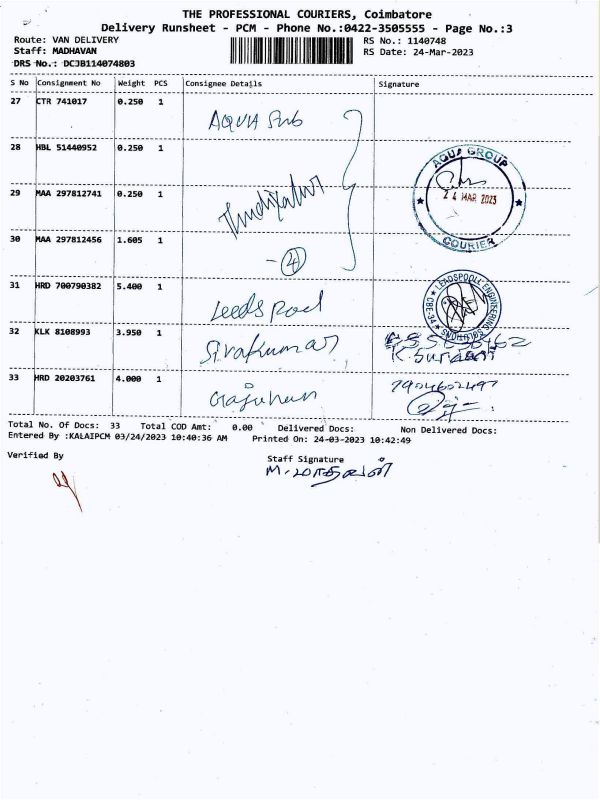 THE PROFESSIONAL COURIERS, Coimbatore
Delivery Runsheet - PCM - Phone No.:0422-3505555 - Page No.:3
Route: VAN DELIVERY RS No.: 1140748
Staff: MADHAVAN RS Date: 24-Mar-2023
DRS No.: DCJB114074803
S No Consignment No Weight PCS Consignee Details Signature
27 CTR 741017 0.250 1 AQUA Sub
28 HBL 51440952 0.250 1
AQUA GROUP
24 MAR 2023
COURIER
29 MAA 297812741 0.250 1
30 MAA 297812456 1.605 1
- 4
31 HRD 700790382 5.400 1 Leeds pool
LEADSPOOL ENGINEERING SOLUTIONS CBE-34
32 KLK 8108993 3.950 1 Sivakumar
33 HRD 20203761 4.000 1
Total No. Of Docs: 33 Total COD Amt: 0.00 Delivered Docs: Non Delivered Docs:
Entered By :KALAIPCM 03/24/2023 10:40:36 AM Printed On: 24-03-2023 10:42:49
Verified By Staff Signature
M. மாதவன்